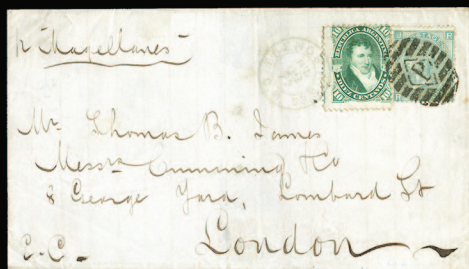 p Magellanes
REPUBLICA ARGENTINA
10
DIEZ CENTAVOS
Mr. Thomas B. James
Messrs Cumming & Co
8 George Yard, Lombard St
London
C.C.